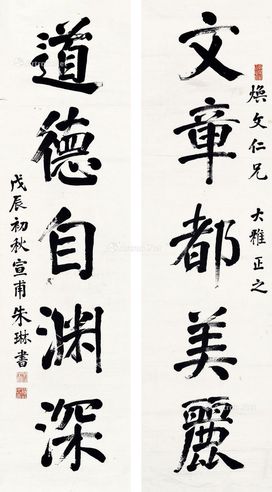 焕文仁兄 大雅正之
文章都美麗
道德自渊深
戊辰初秋宣甫朱琳書